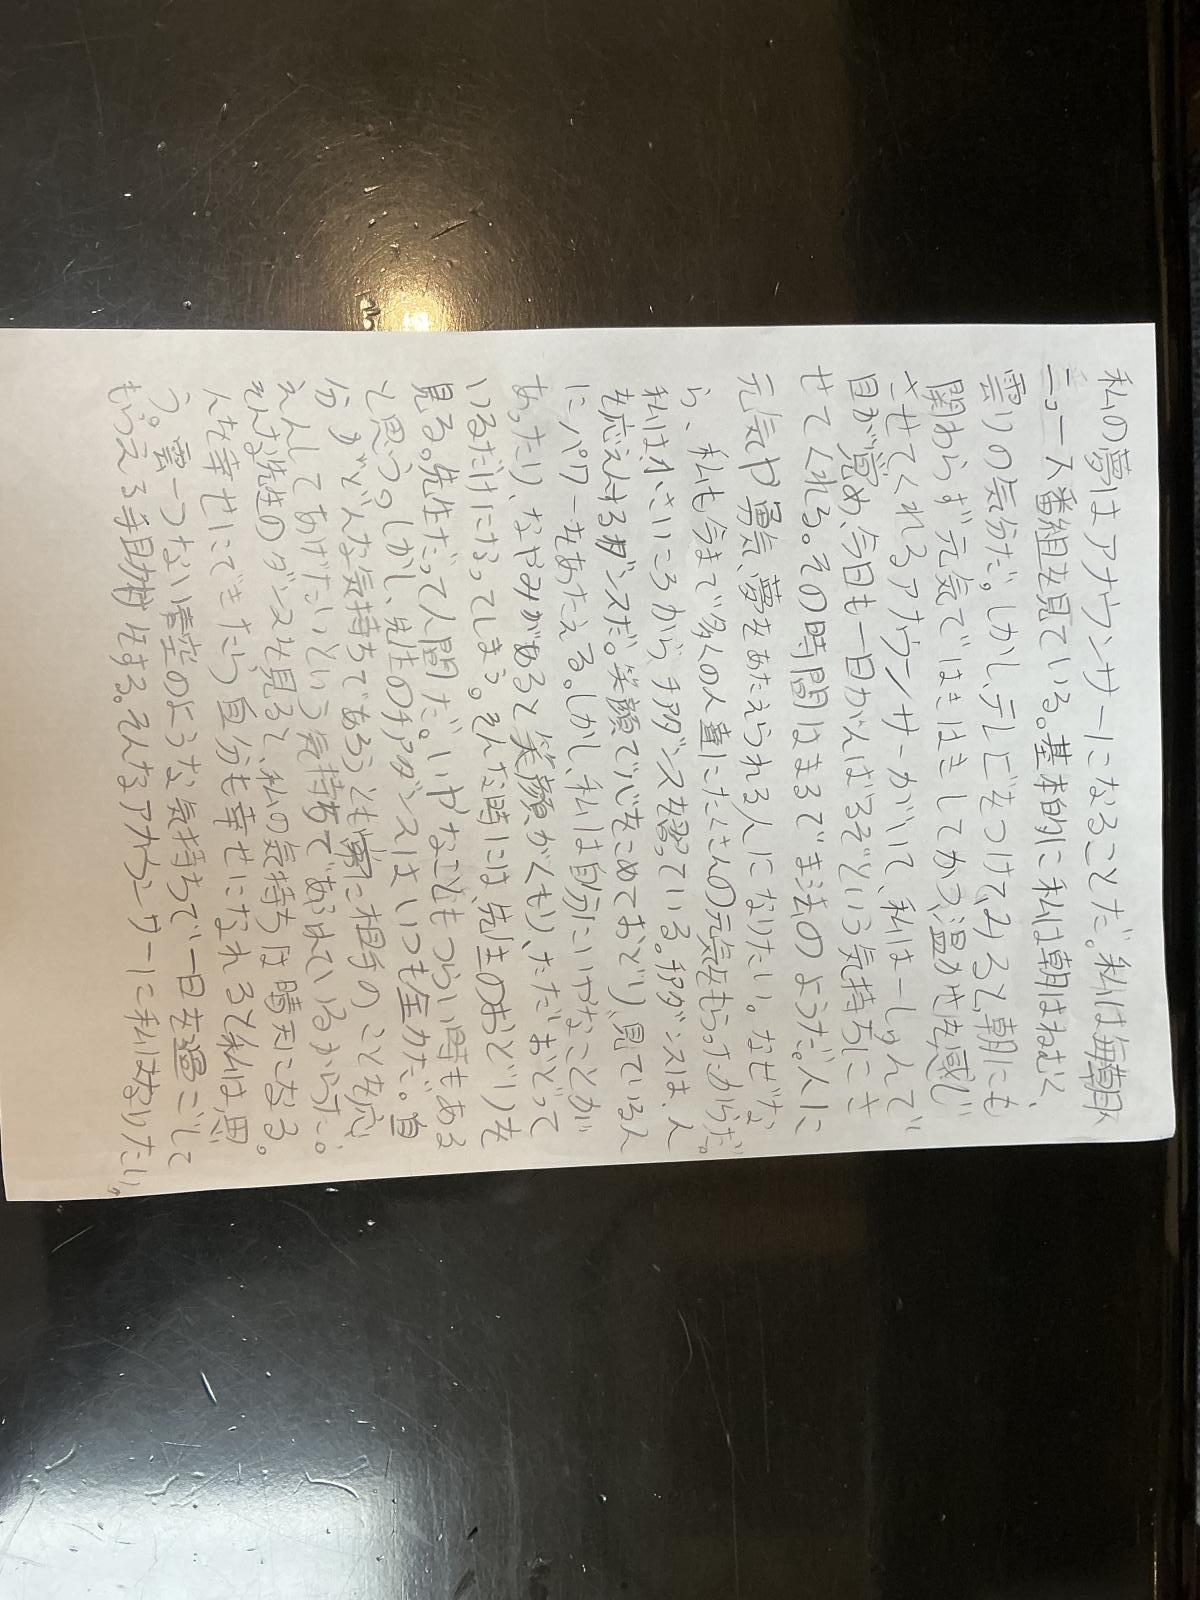 私の夢はアナウンサーになることだ。私は毎朝
ニュース番組を見ている。基本的に私は朝はねむく、
雲りの気分だ。しかし、テレビをつけてみると、朝にも
関わらず元気ではきはきしてかつ、温かさを感じ
させてくれるアナウンサーがいて、私は一しゅんで
目が覚め、今日も一日がんばるぞという気持ちにさ
せてくれる。その時間はまるでま法のようだ。人に
元気や勇気、夢をあたえられる人になりたい。なぜな
ら、私も今まで多くの人達にたくさんの元気をもらったからだ。
私は小さいころからチアダンスを習っている。チアダンスは、人
を応えんするダンスだ。笑顔で心をこめておどり、見ている人
にパワーをあたえる。しかし、私は自分にいやなことが
あったり、なやみがあると笑顔がくもり、ただおどって
いるだけになってしまう。そんな時には、先生のおどりを
見る。先生だって人間だ。いやなこともつらい時もある
と思う。しかし、先生のチアダンスはいつも全力だ。自
分がどんな気持ちであろうとも常に相手のことを応
えんしてあげたいという気持ちであふれているからだ。
そんな先生のダンスを見て、私の気持ちは晴天になる。
人を幸せにできたら自分も幸せになれると私は思
う。雲一つない青空のような気持ちで一日を過ごして
もらえる手助けをする。そんなアナウンサーに私はなりたい。